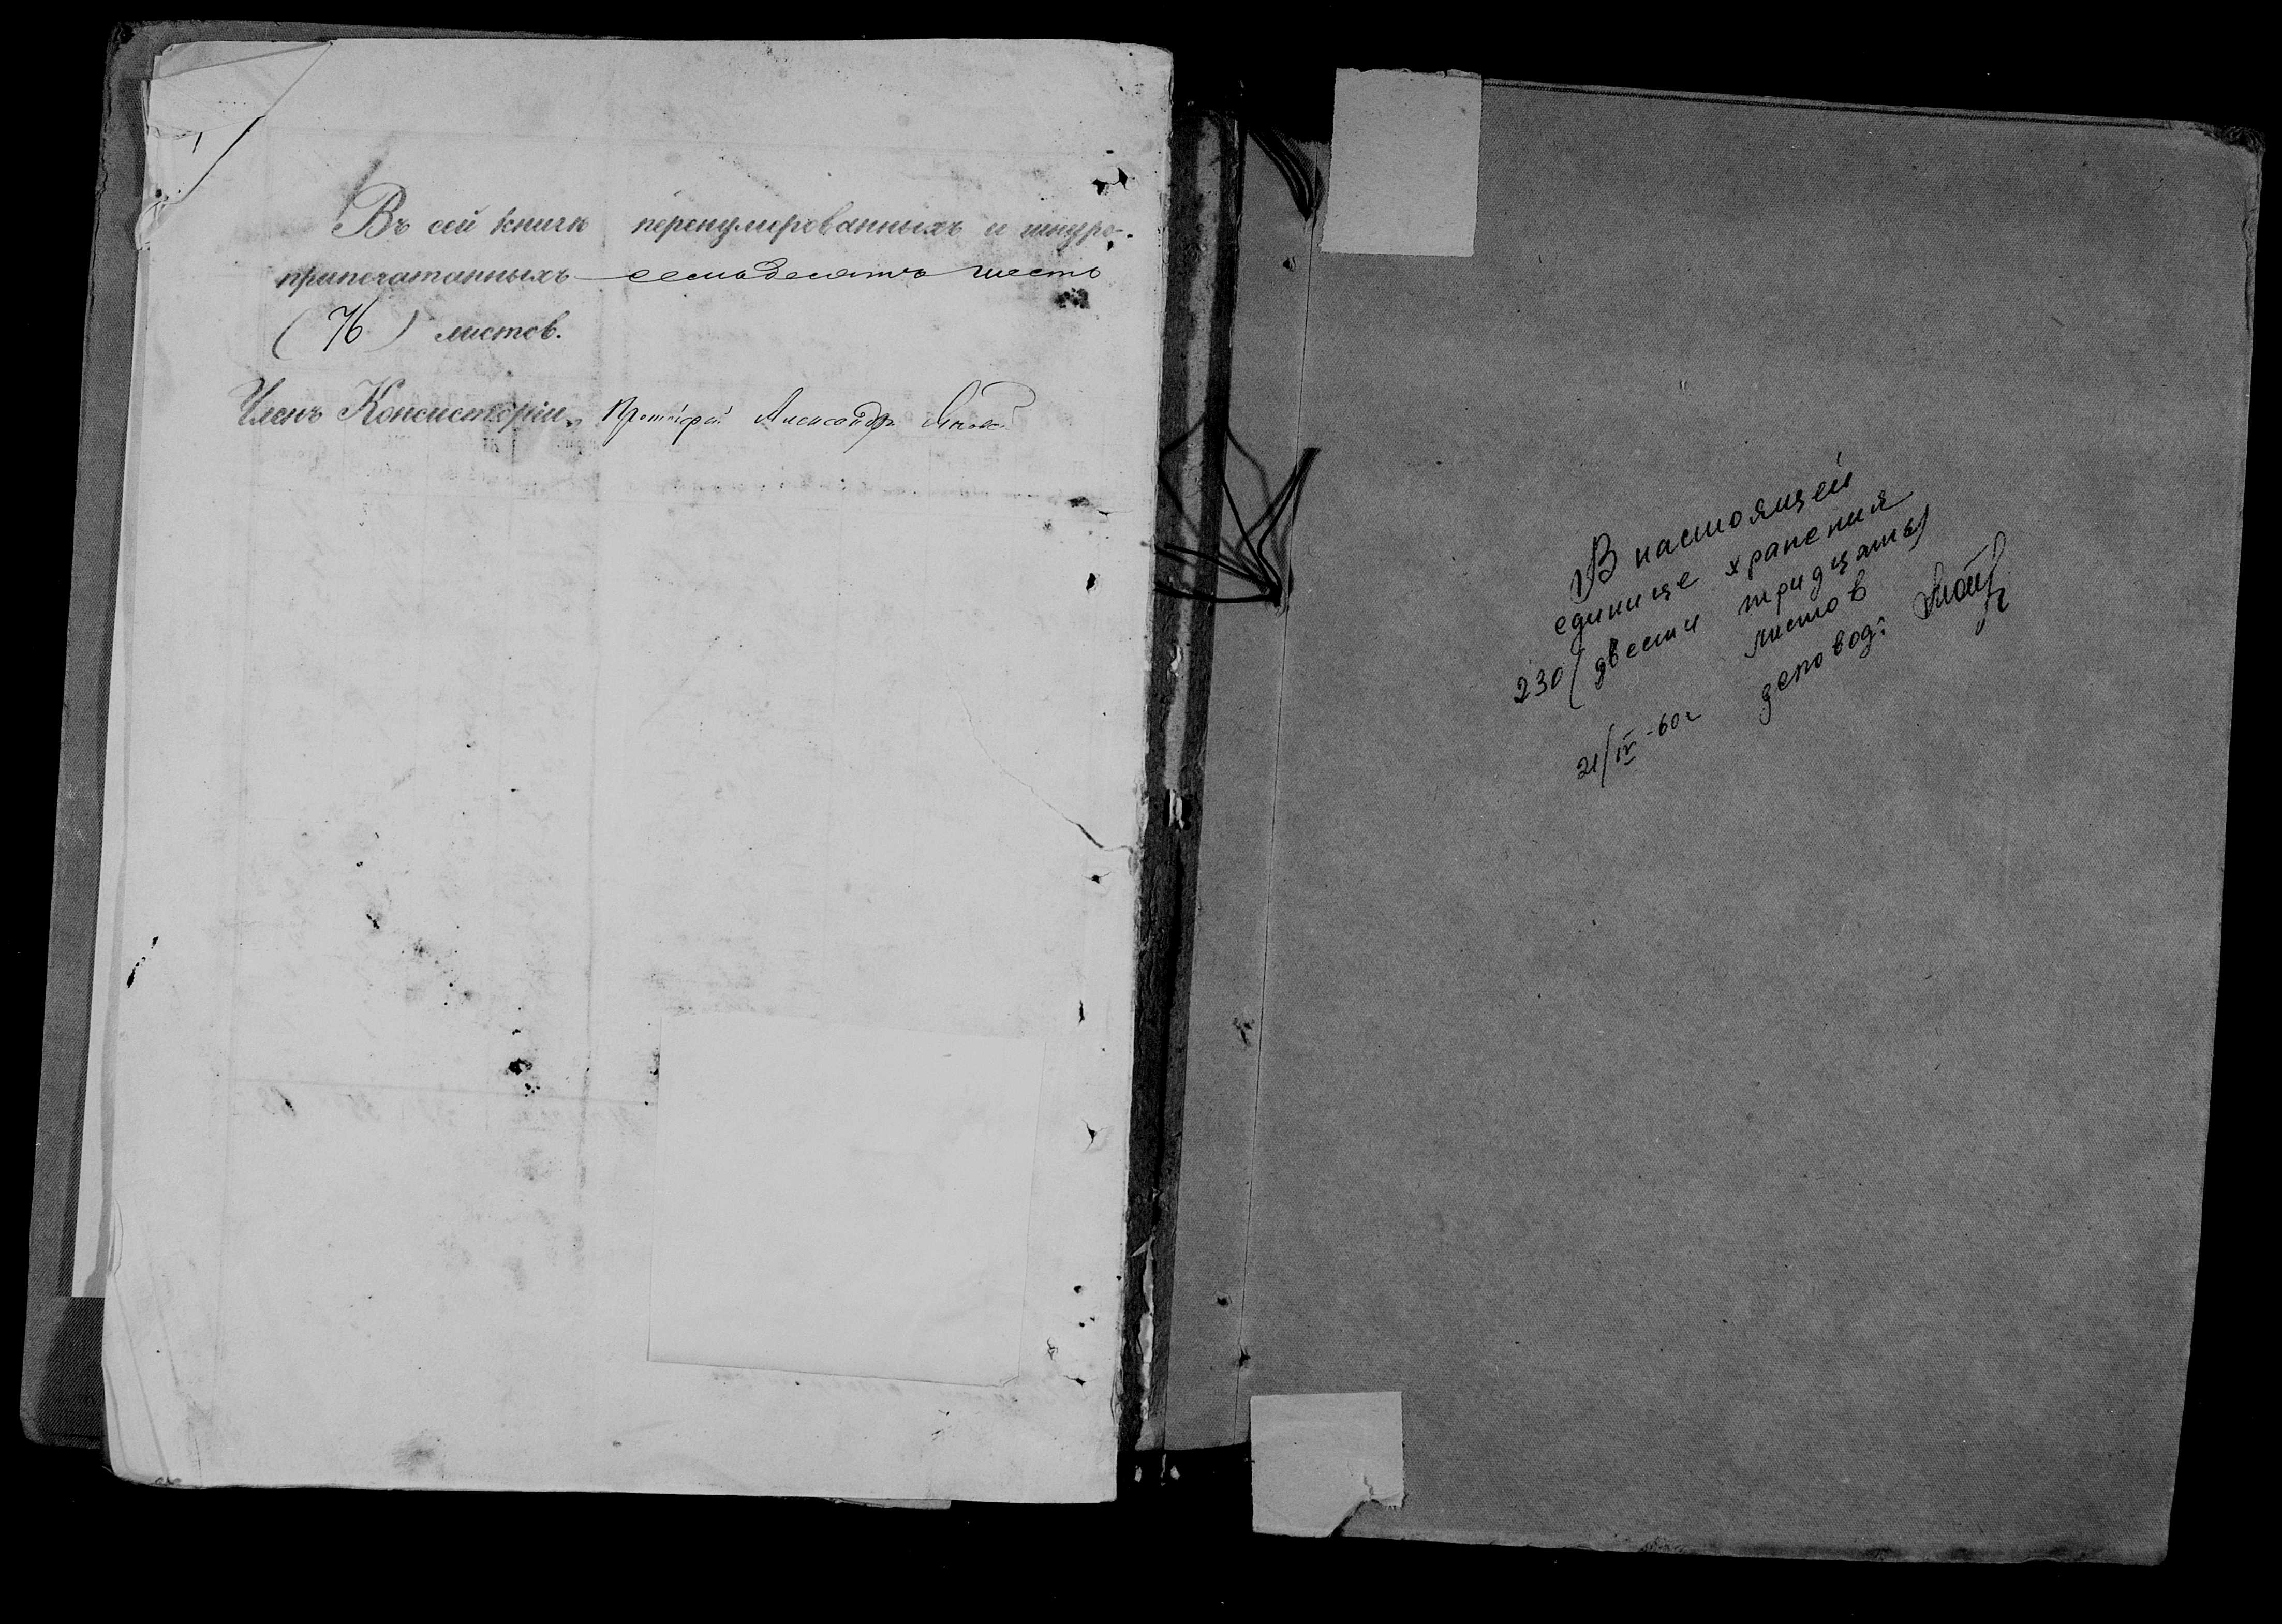 Въ сей книгѣ перенумерованныхъ и шнуро-
припечатанныхъ семьдесятъ шесть
(76) листов.
Членъ Консисторіи, Протоіерей Александръ
В настоящей
единице хранения
230 (двести тридцать)
листов
деловод:
21/IV-60г